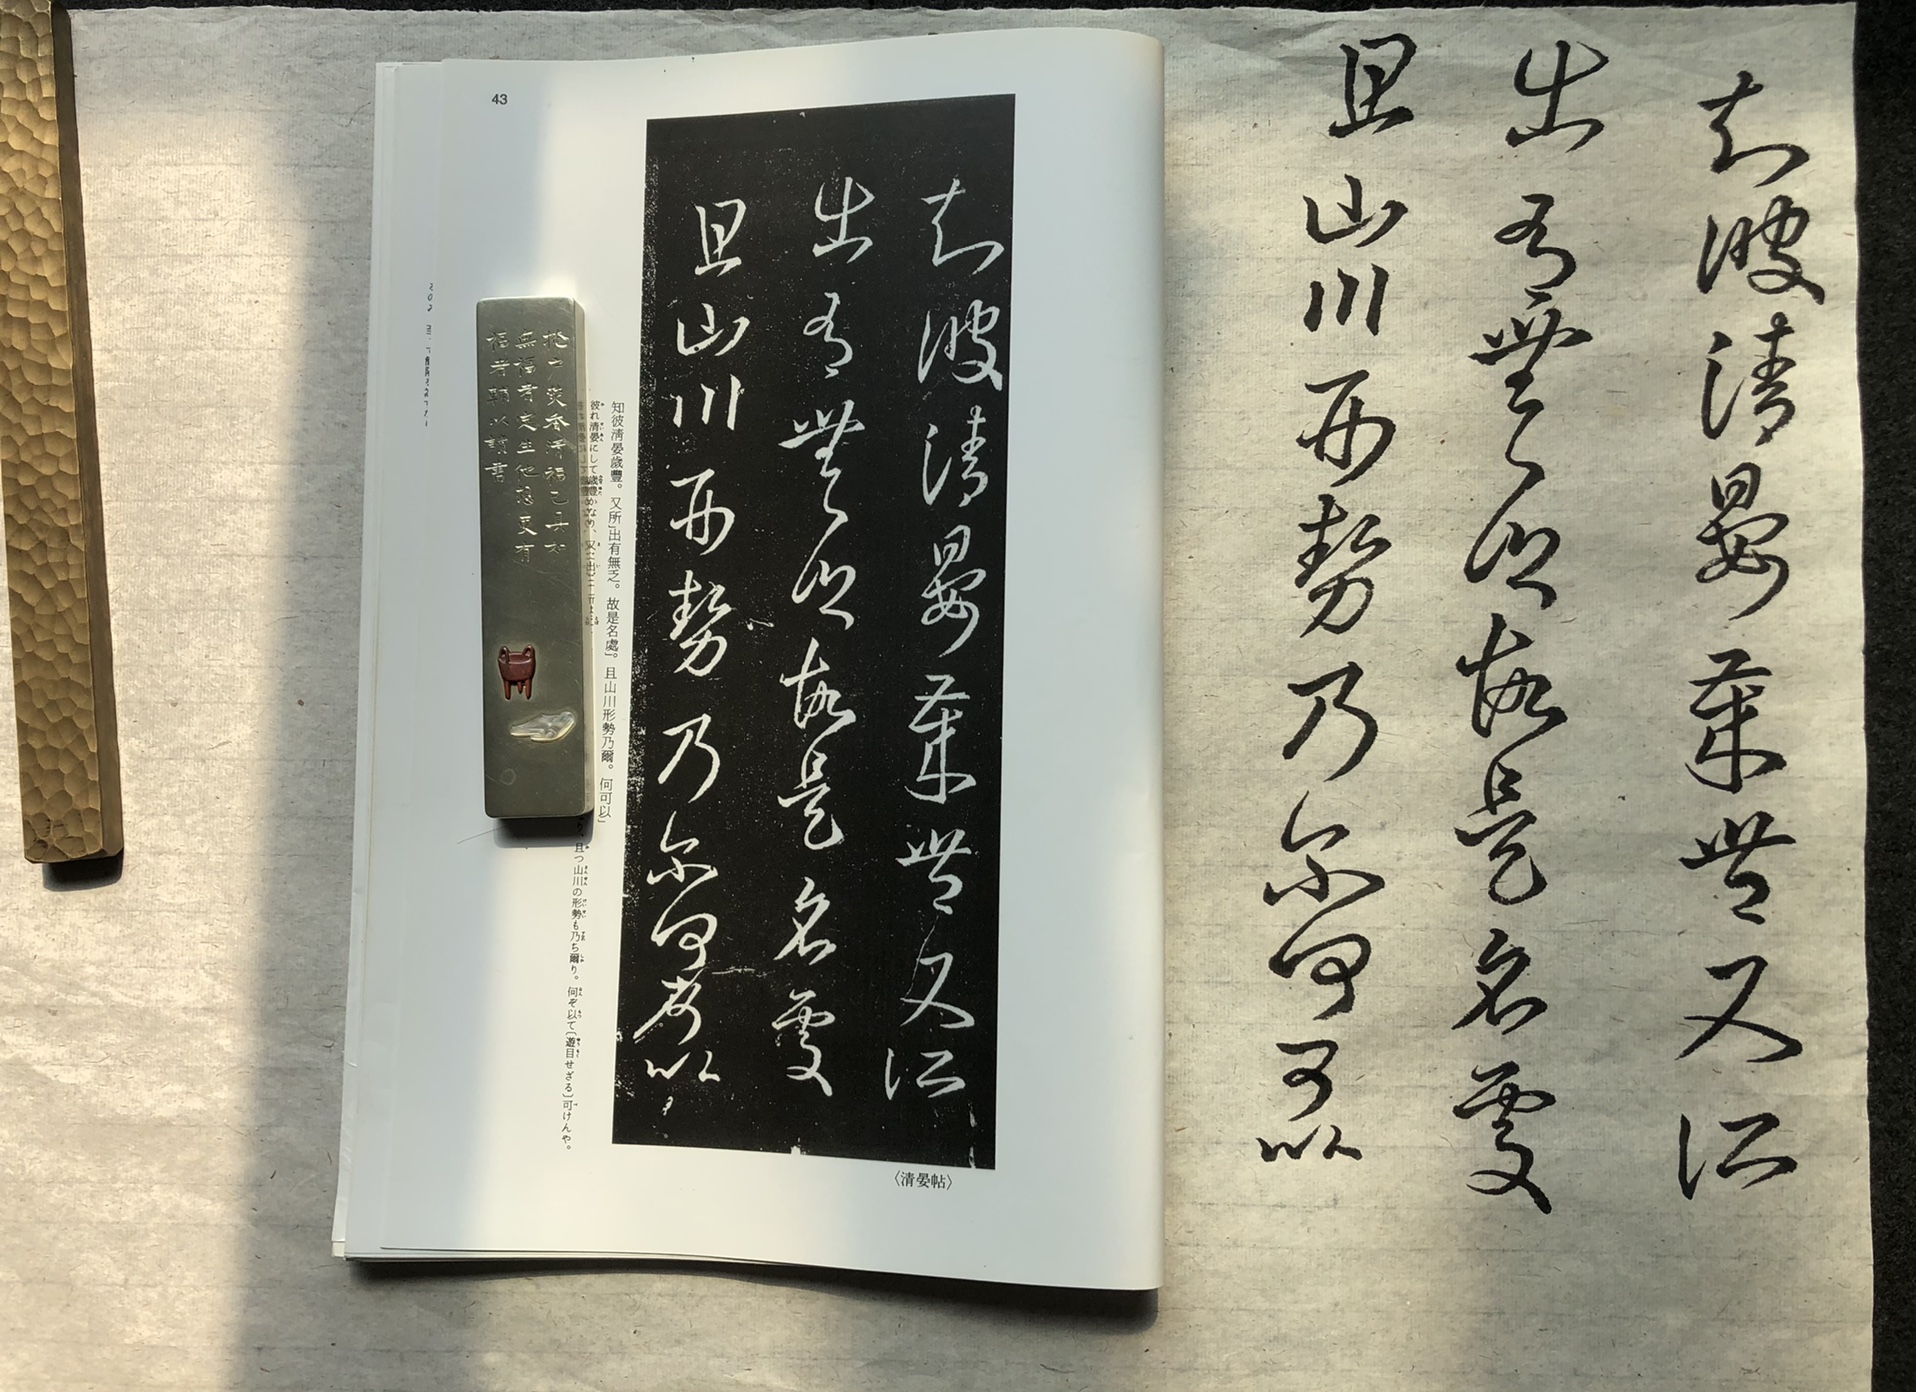 知彼清晏歳豐又所
出有無乏故是名處
且山川形勢乃爾何可以
知彼清晏歳豐又所
出有無乏故是名處
且山川形勢乃爾何可以
知彼清晏歳豐。又所」出有無乏。故是名處」。且山川形勢乃爾。何可以」
彼れ清晏にして歳豐かなり、又
且つ山川の形勢も乃ち爾り。何ぞ以て〔遊目せざる〕可けんや。
〈清晏帖〉
43
無福者
福者
書